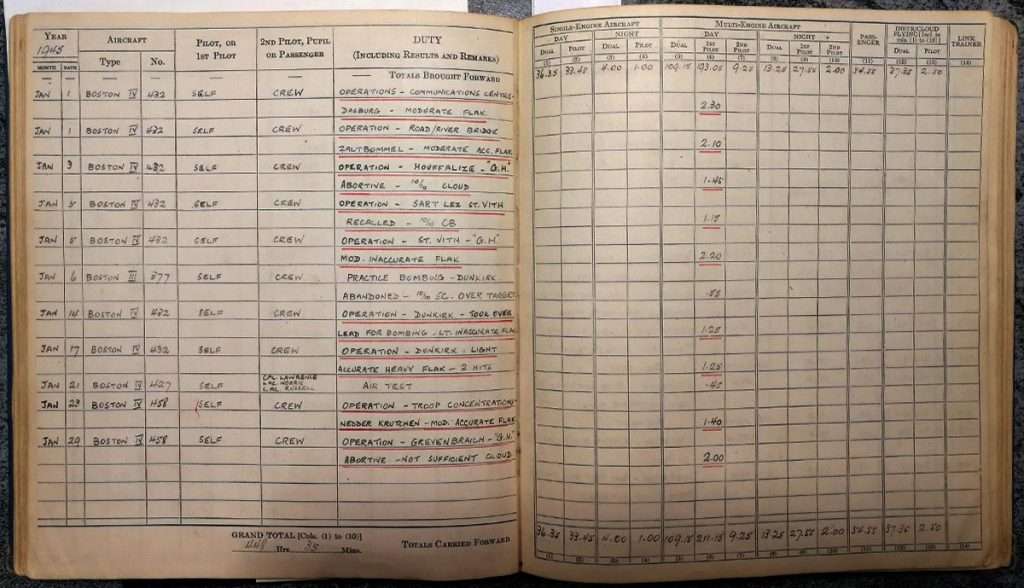 YEAR
1945
AIRCRAFT
PILOT, OR
1ST PILOT
2ND PILOT, PUPIL
OR PASSENGER
DUTY
(INCLUDING RESULTS AND REMARKS)
MONTH DATE Type No.
— — — — — — TOTALS BROUGHT FORWARD
JAN 1 BOSTON IV 432 SELF CREW OPERATIONS - COMMUNICATIONS CENTRE-
DASBURG - MODERATE FLAK
JAN 1 BOSTON IV 432 SELF CREW OPERATION - ROAD/RIVER BRIDGE
ZALTBOMMEL - MODERATE ACC. FLAK
JAN 3 BOSTON IV 432 SELF CREW OPERATION - HOUFFALIZE - "G.H."
ABORTIVE - 10/10 CLOUD
JAN 5 BOSTON IV 432 SELF CREW OPERATION - SART LEZ ST. VITH
RECALLED - 10/10 CB
JAN 5 BOSTON IV 432 SELF CREW OPERATION - ST. VITH - "G.H"
MOD. INACCURATE FLAK
JAN 6 BOSTON III 377 SELF CREW PRACTICE BOMBING - DUNKIRK
ABANDONED - 10/10 SC. OVER TARGET
JAN 14 BOSTON IV 432 SELF CREW OPERATION - DUNKIRK - TOOK OVER
LEAD FOR BOMBING - LT. INACCURATE FLAK
JAN 17 BOSTON IV 432 SELF CREW OPERATION - DUNKIRK - LIGHT
ACCURATE HEAVY FLAK - 2 HITS
JAN 21 BOSTON IV 427 SELF CPL LAWRENCE AIR TEST
LAC NORRIS
LAC RUSSELL
JAN 23 BOSTON IV 458 SELF CREW OPERATION - TROOP CONCENTRATIONS
NEDDER KRUTCHEN - MOD. ACCURATE FLAK
JAN 29 BOSTON IV 458 SELF CREW OPERATION - GREVENBRAICH - "G.H."
ABORTIVE - NOT SUFFICIENT CLOUD
GRAND TOTAL [Cols. (1) to (10)]
Hrs. 35 Mins.
TOTALS CARRIED FORWARD
SINGLE-ENGINE AIRCRAFT MULTI-ENGINE AIRCRAFT
DAY NIGHT DAY NIGHT
PASS-
ENGER
INSTR/CLOUD
FLYING [Incl. in
cols. (1) to (10)]
LINK
TRAINER
DUAL PILOT DUAL PILOT DUAL 1ST PILOT 2ND PILOT DUAL 1ST PILOT 2ND PILOT DUAL PILOT
(1) (2) (3) (4) (5) (6) (7) (8) (9) (10) (11) (12) (13) (14)
36.35 33.45 4.00 1.00 109.15 193.05 9.25 13.25 27.55 2.00 34.55 37.35 2.50
2.30
2.10
1.45
1.15
2.20
.55
1.25
1.25
.45
1.40
2.00
36.35 33.45 4.00 1.00 109.15 211.15 9.25 13.25 27.55 2.00 34.55 37.35 2.50
(1) (2) (3) (4) (5) (6) (7) (8) (9) (10) (11) (12) (13) (14)